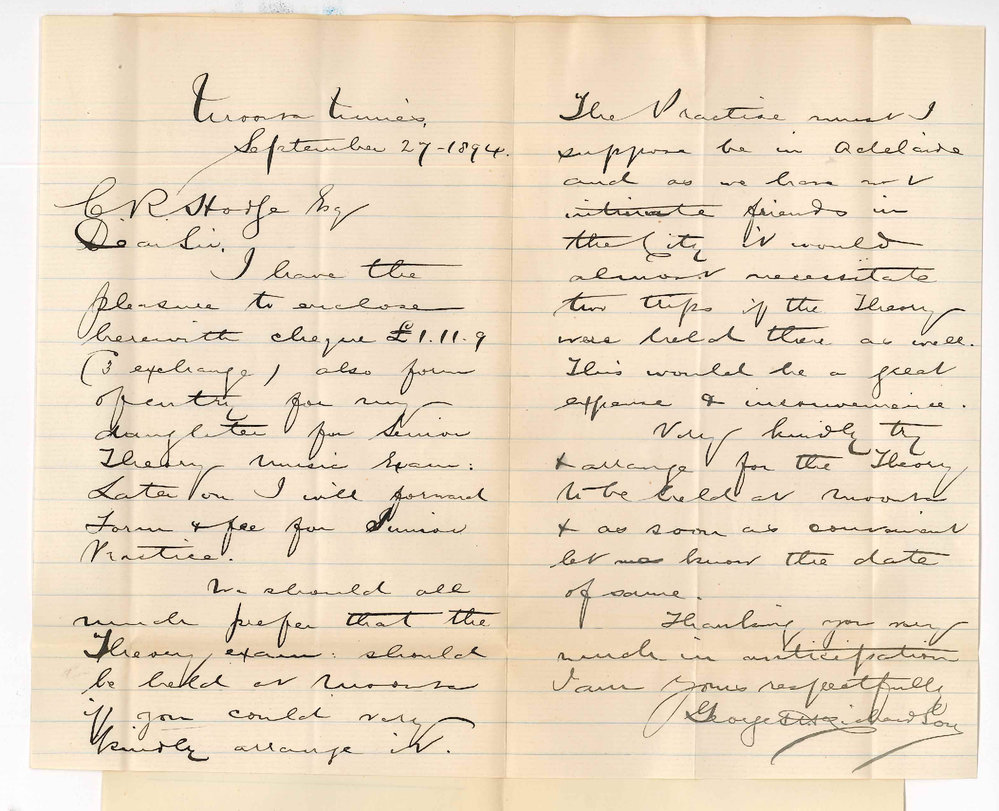 Moonta Mines,
September 27-1894.
C R Hodge Esq
Dear Sir,
I have the
pleasure to enclose
herewith cheque £1.11.9
(3 exchange) also form
of entry for my
daughter for Senior
Theory Music Exam:
Later on I will forward
Form & fee for Senior
Practice.
We should all
much prefer that the
Theory exam: should
be held at Moonta
if you could very
kindly arrange it.
The Practise must I
suppose be in Adelaide
and as we have not
intimate friends in
the City it would
almost necessitate
two trips if the Theory
were held there as well.
This would be a great
expense & inconvenience.
Very kindly try
& arrange for the Theory
to be held at Moonta
& as soon as convenient
let me know the date
of same.
Thanking you very
much in anticipation
I am yours respectfully
George Richardson